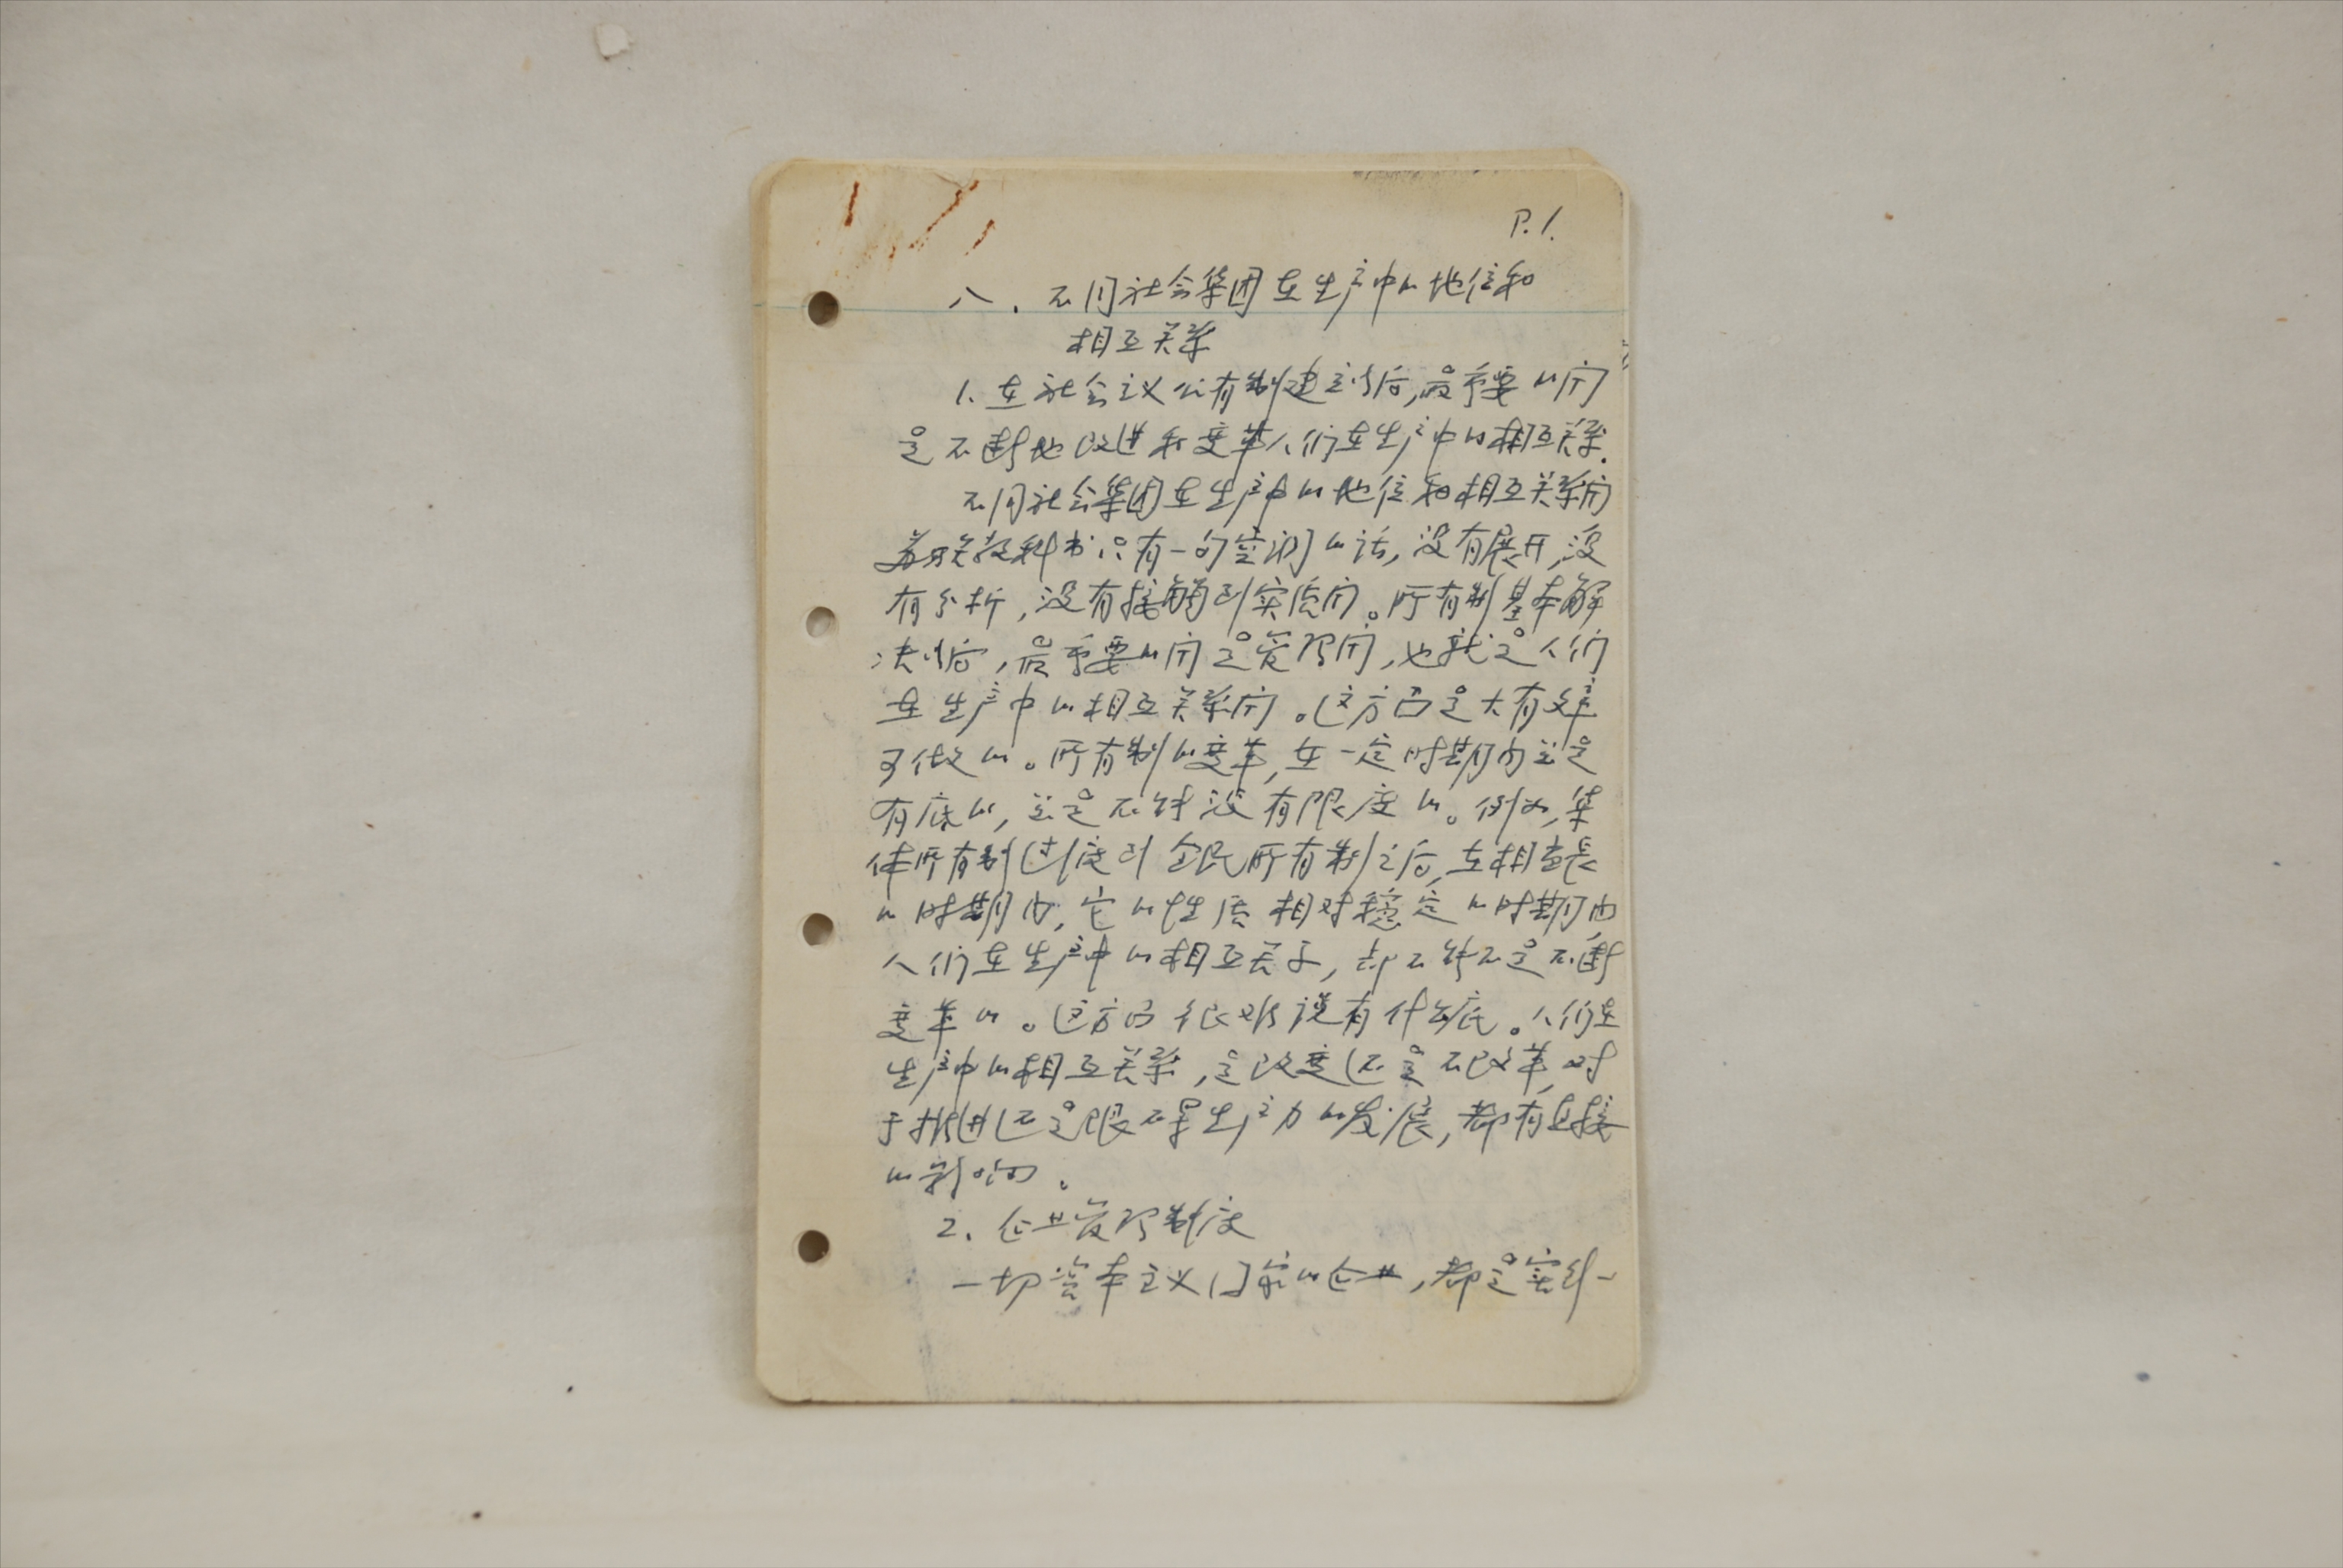 P.1.
八、不同社会集团在生产中的地位和
相互关系
1. 在社会主义公有制建立以后,最重要的问
是不断地改进和变革人们在生产中的相互关系.
不同社会集团在生产中的地位和相互关系问
苏联教科书只有一句空洞的话,没有展开,没
有分析,没有接触到实质问。所有制基本解
决以后,最重要的问是管理问,也就是人们
在生产中的相互关系问。这方面是大有文章
可做的。所有制的变革,在一定时期内总是
有底的,总是不能没有限度的。例如,集
体所有制过渡到全民所有制之后,在相当长
的时期内,它的性质相对稳定的时期内,
人们在生产中的相互关系,却不能不是不断
变革的。这方面很难说有什么底。人们在
生产中的相互关系,是改变还是不改革,对
于推进还是阻碍生产力的发展,都有直接
的影响。
2. 企业管理制度
一切资本主义国家的企业,都是实行一